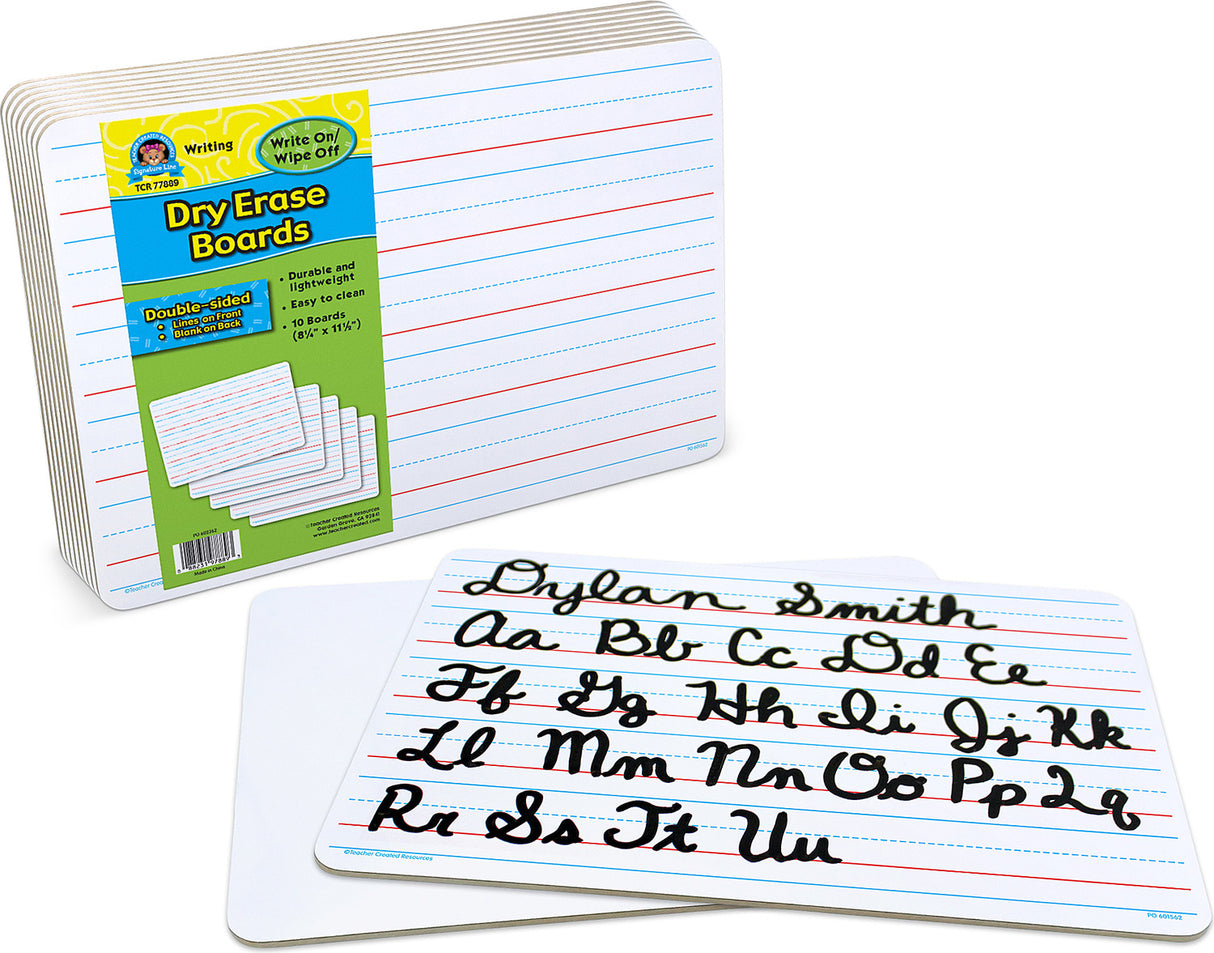 TEACHER CREATED RESOURCES
Signature Line
TCR 77889
Writing
Write On/
Wipe Off
Dry Erase
Boards
Double-sided
• Lines on Front
• Blank on Back
• Durable and
lightweight
• Easy to clean
• 10 Boards
(8¼" x 11½")
©Teacher Created Resources
Garden Grove, CA 92841
www.teachercreated.com
PO 601562
Made in China
©Teacher Crea
PO 601562
Dylan Smith
Aa Bb Cc Dd Ee
Ff Gg Hh Ii Jj Kk
Ll Mm Nn Oo Pp Qq
Rr Ss Tt Uu
©Teacher Created Resources
PO 601562